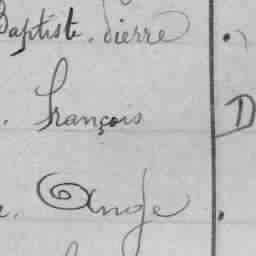 Baptiste. Pierre
. François D
. Ange .